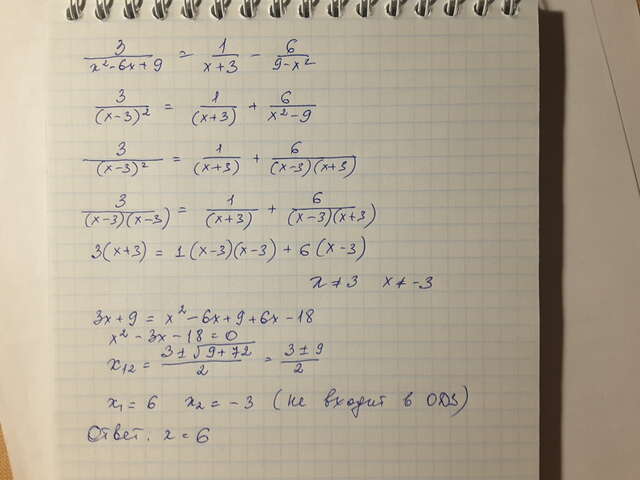 3/(x²-6x+9) = 1/(x+3) - 6/(9-x²)
3/(x-3)² = 1/(x+3) + 6/(x²-9)
3/(x-3)² = 1/(x+3) + 6/((x-3)(x+3))
3/((x-3)(x-3)) = 1/(x+3) + 6/((x-3)(x+3))
3(x+3) = 1(x-3)(x-3) + 6(x-3)
x≠3 x≠-3
3x+9 = x²-6x+9+6x-18
x²-3x-18=0
x₁₂ = (3±√(9+72))/2 = (3±9)/2
x₁=6 x₂=-3 (не входит в ОДЗ)
Ответ: x=6